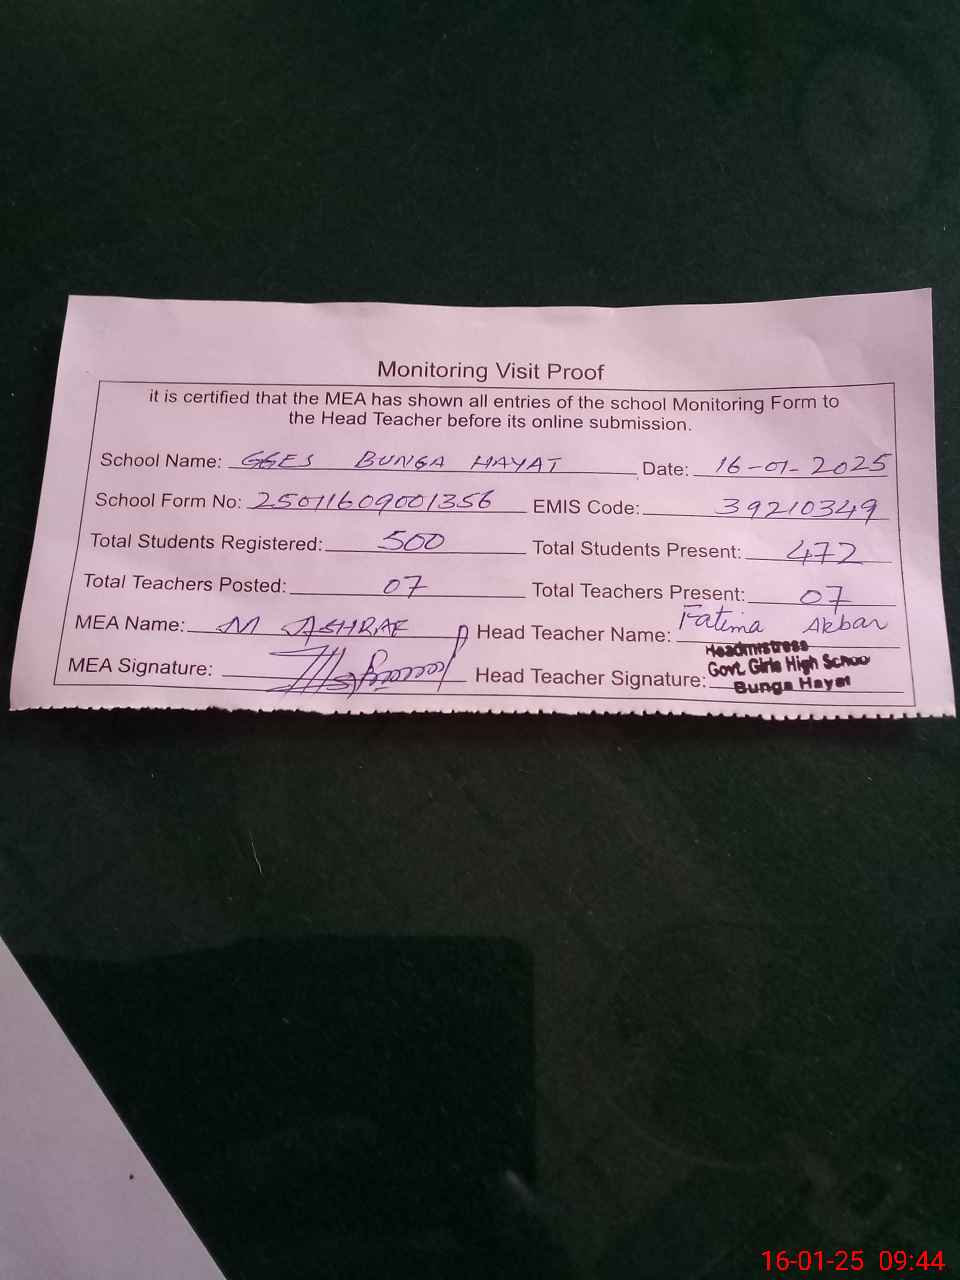 Monitoring Visit Proof
it is certified that the MEA has shown all entries of the school Monitoring Form to
the Head Teacher before its online submission.
School Name: GGES BUNGA HAYAT Date: 16-01-2025
School Form No: 25011609001356 EMIS Code: 39210349
Total Students Registered: 500 Total Students Present: 472
Total Teachers Posted: 07 Total Teachers Present: 07
MEA Name: M ASHRAF Head Teacher Name: Fatima Akbar
MEA Signature: Head Teacher Signature:
Headmistress
Govt. Girls High School
Bunga Hayat
16-01-25 09:44